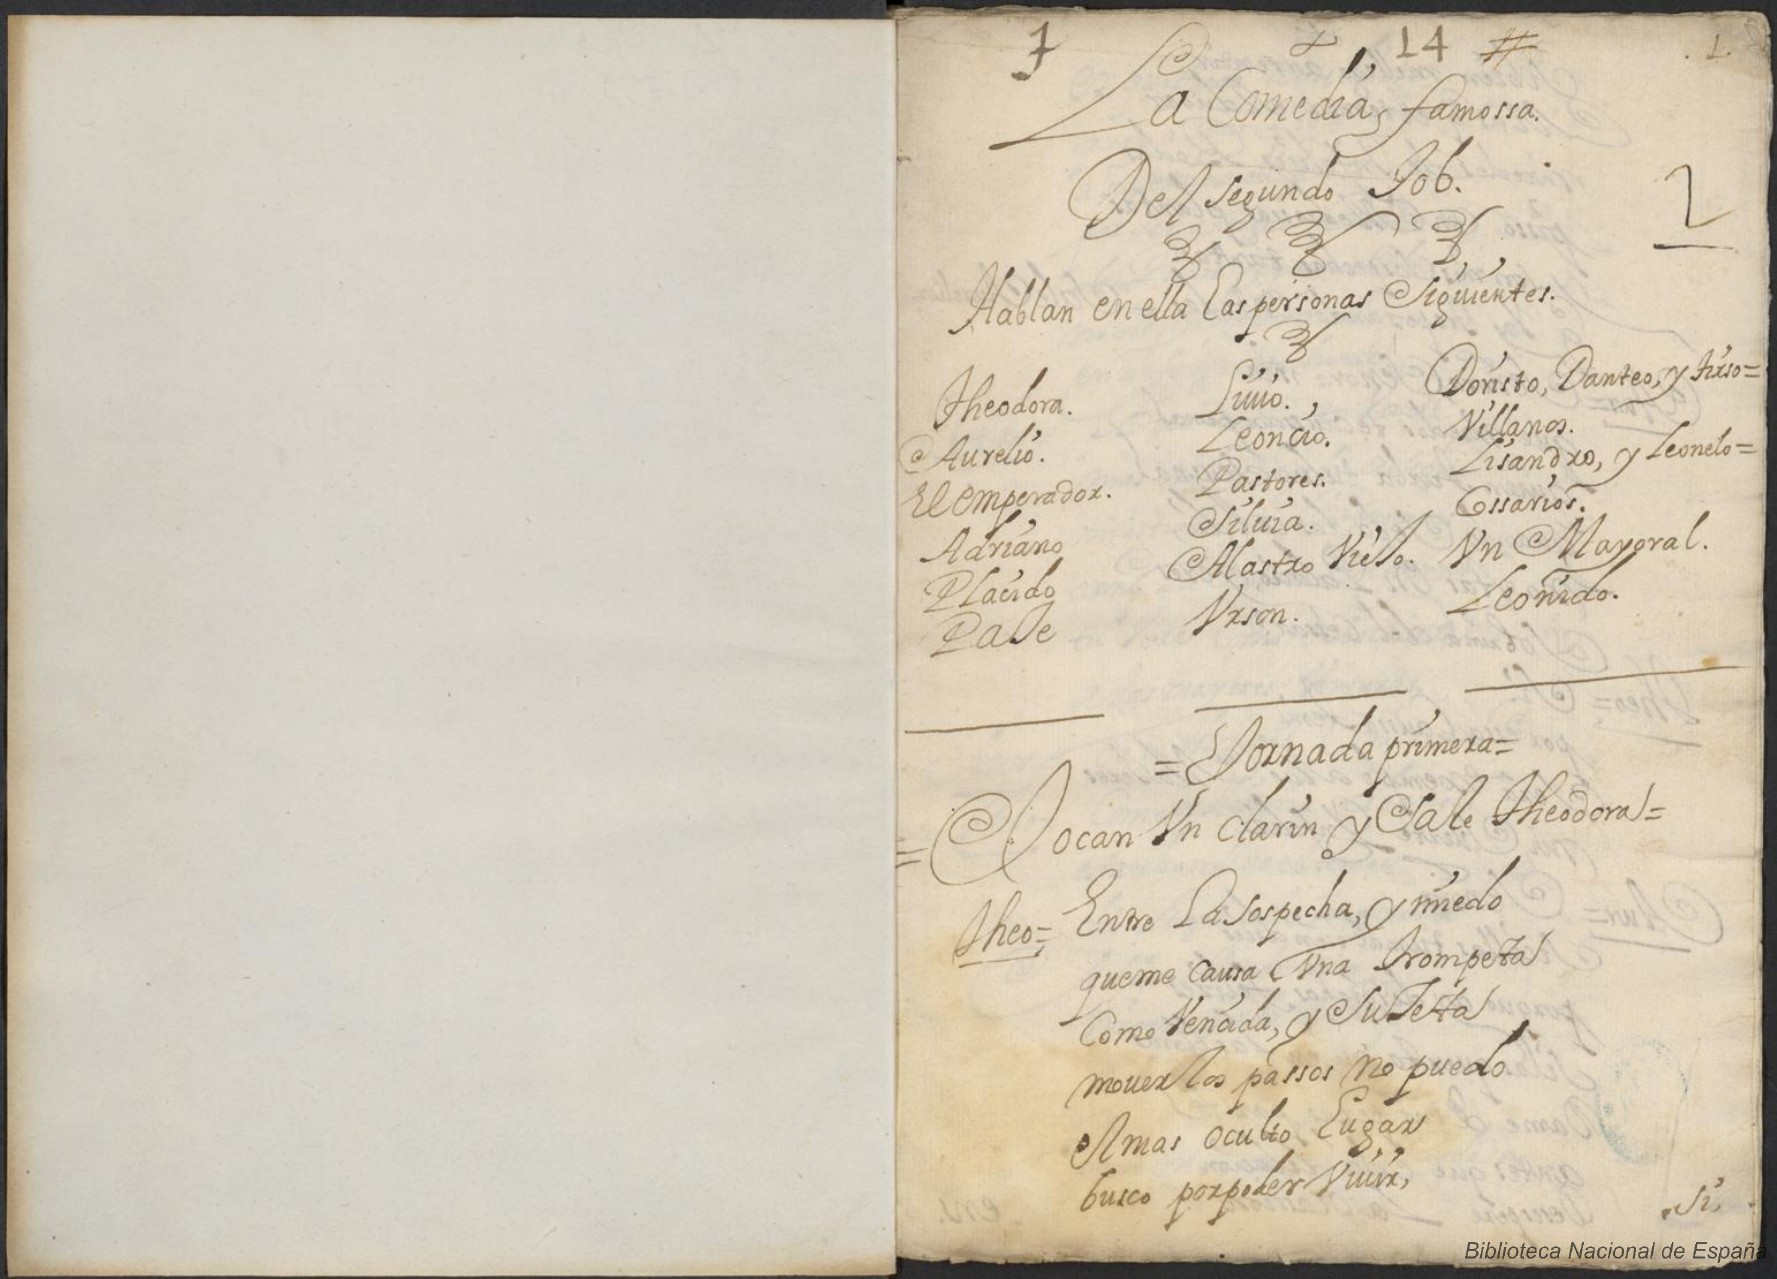 1 14 # .1.
La Comedia, famossa.
Del segundo Job.
2
Hablan en ella las personas Siguientes.
Theodora.
Aurelio.
El emperador.
Adriano
Placido
Daje
Liuio.
Leoncio.
Pastores.
Siluia.
Mastro Viejo.
Vrson.
Doristo, Danteo, y tirso=
Villanos.
Lisandro, y Leonelo=
Cossarios.
Vn Mayoral.
Leonido.
= Jornada primera=
= Tocan Vn clarin y Sale theodora=
theo= Entre la sospecha, y miedo
que me causa Vna trompeta
Como Vencida, y Sujeta
mouer los passos no puedo
A mas oculto lugar
busco por poder Viuir,
si,
Biblioteca Nacional de España